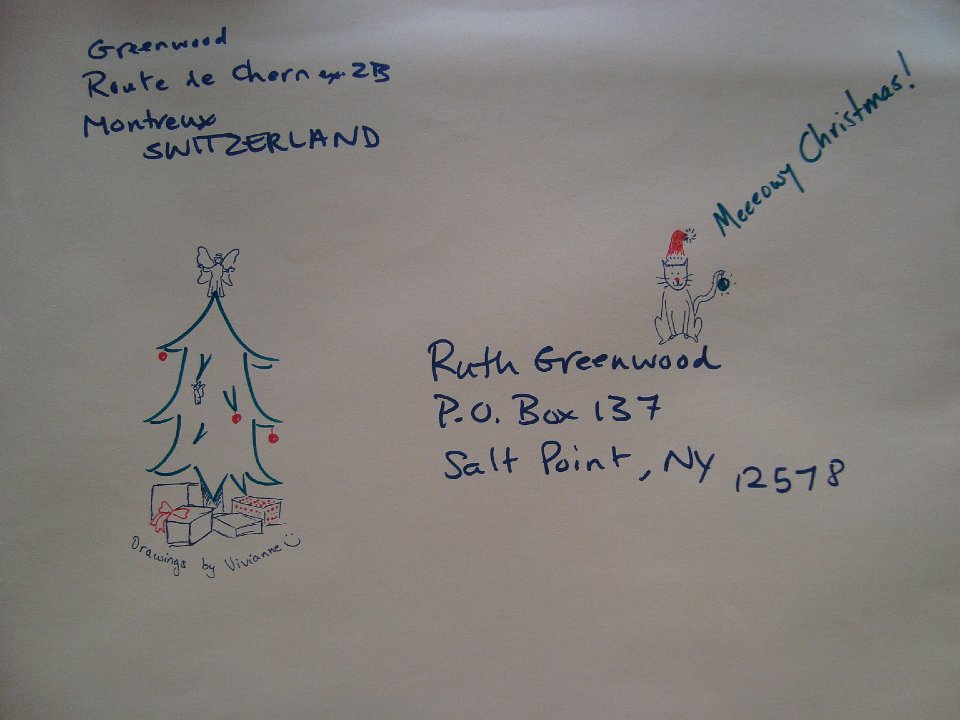 Greenwood
Route de Chernex 2B
Montreux
SWITZERLAND
Meeeowy Christmas!
Ruth Greenwood
P.O. Box 137
Salt Point, NY 12578
Drawings by Vivianne